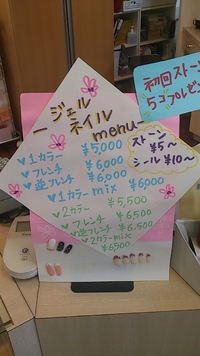 ジェル
ネイル
menu
♥1カラー ¥5000
♥フレンチ ¥6000
♥逆フレンチ ¥6,000
♥1カラーmix ¥6000
♥2カラー ¥5,500
♥フレンチ ¥6,500
♥逆フレンチ ¥6,500
♥2カラーmix
¥6500
ストーン
¥5〜
シール ¥10〜
初回ストーン
5コプレゼ